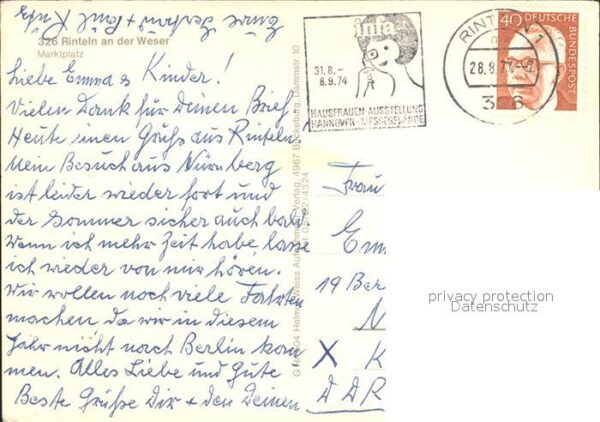 326 Rinteln an der Weser
Marktplatz
Liebe Emma & Kinder!
Vielen Dank für Deinen Brief
Heute einen Gruß aus Rinteln
Mein Besuch aus Nürnberg
ist leider wieder fort und
der Sommer sicher auch bald.
Wenn ich mehr Zeit habe, lasse
ich wieder von mir hören.
Wir wollen noch viele Fahrten
machen, da wir in diesem
Jahr nicht nach Berlin kom
men. Alles Liebe und Gute
Beste Grüße Dir + den Deinen
Eure
infa
31.8. –
8.9.74
HAUSFRAUEN-AUSSTELLUNG
HANNOVER-MESSEGELÄNDE
RINTELN
28.8.74
326
40 DEUTSCHE
BUNDESPOST
Verlag, 4967 Bückeburg, Dammstr. 10
Frau
Em
19 Ber
N
X K
DDR
privacy protection
Datenschutz